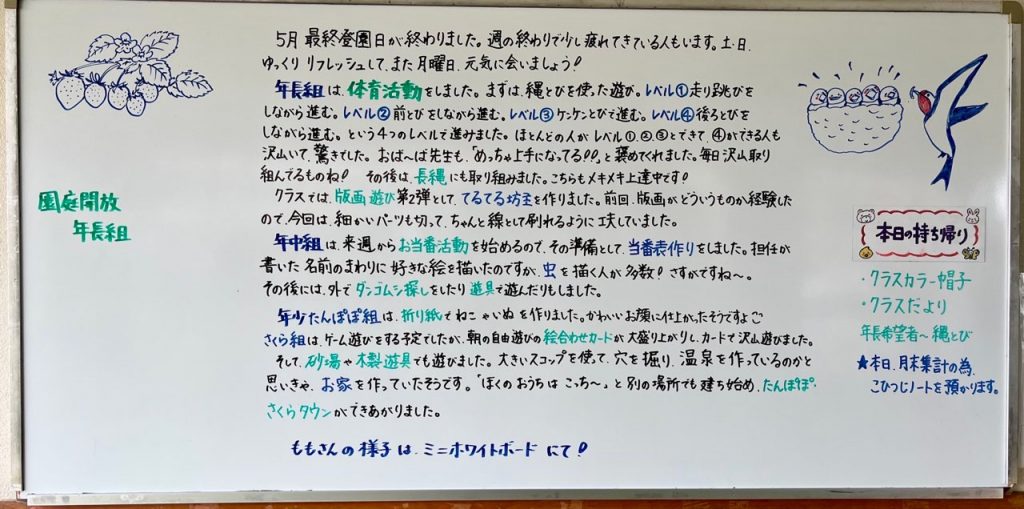 5月 最終登園日が終わりました。週の終わりで少し疲れてきている人もいます。土・日、
ゆっくり リフレッシュして、また 月曜日、元気に会いましょう!
年長組は、体育活動をしました。まずは、縄とびを使った遊び。レベル①走り跳びを
しながら進む。レベル②前とびをしながら進む。レベル③ケンケンとびで進む。レベル④後ろとびを
しながら進む。という4つのレベルで進みました。ほとんどの人が レベル①②③とできて、④ができる人も
沢山いて、驚きでした。おばーば先生も、「めっちゃ上手になってる!!」と褒めてくれました。毎日沢山取り
組んでるものね! その後は、長縄にも取り組みました。こちらもメキメキ上達中です!
クラスでは、版画遊び第2弾として、てるてる坊主を作りました。前回、版画がどういうものか経験した
ので、今回は、細かいパーツも切って、ちゃんと線として刷れるように工夫していました。
年中組は、来週からお当番活動を始めるので、その準備として、当番表作りをしました。担任が
書いた名前のまわりに好きな絵を描いたのですが、虫を描く人が多数!さすがですね〜。
その後には、外でダンゴムシ探しをしたり遊具で遊んだりもしました。
年少たんぽぽ組は、折り紙でねこやいぬを作りました。かわいいお顔に仕上がったそうですよ
さくら組は、ゲーム遊びをする予定でしたが、朝の自由遊びの絵合わせカードが大盛り上がりし、カードで沢山遊びました。
そして、砂場や木製遊具でも遊びました。大きいスコップを使って、穴を掘り、温泉を作っているのかと
思いきや、お家を作っていたそうです。「ぼくのおうちはこっち〜」と別の場所でも建ち始め、たんぽぽ・
さくらタウンができあがりました。
ももさんの様子は、ミニホワイトボードにて!
園庭開放
年長組
本日の持ち帰り
・クラスカラー帽子
・クラスだより
年長希望者〜縄とび
★本日、月末集計の為、
こひつじノートを預かります。